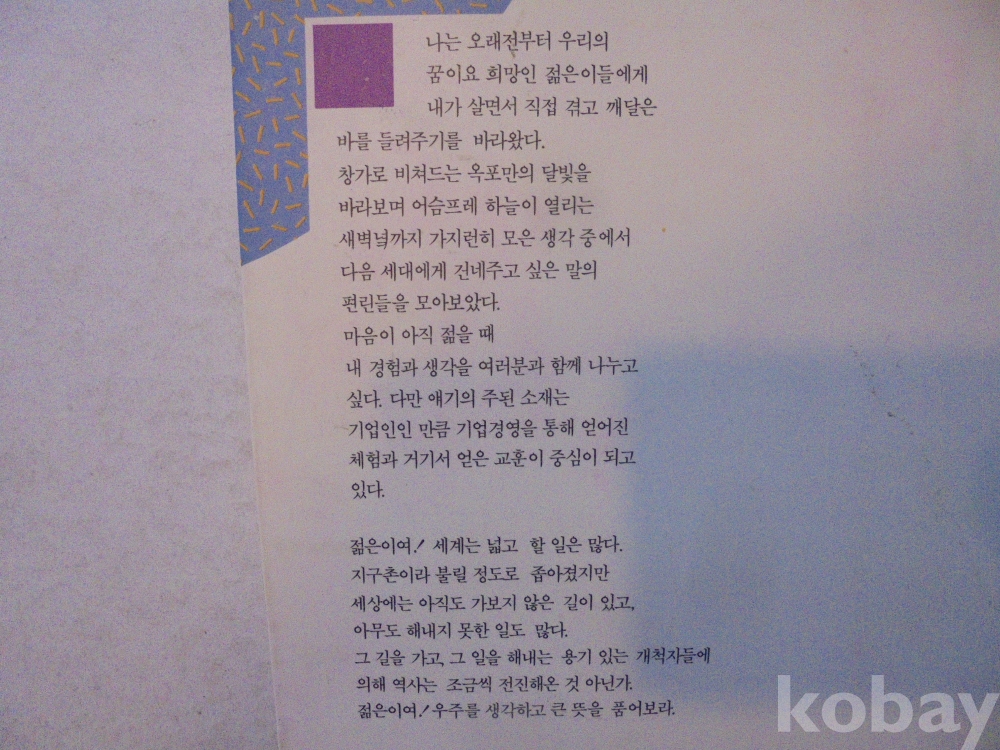 나는 오래전부터 우리의
꿈이요 희망인 젊은이들에게
내가 살면서 직접 겪고 깨달은
바를 들려주기를 바라왔다.
창가로 비쳐드는 옥포만의 달빛을
바라보며 어슴프레 하늘이 열리는
새벽녘까지 가지런히 모은 생각 중에서
다음 세대에게 건네주고 싶은 말의
편린들을 모아보았다.
마음이 아직 젊을 때
내 경험과 생각을 여러분과 함께 나누고
싶다. 다만 얘기의 주된 소재는
기업인인 만큼 기업경영을 통해 얻어진
체험과 거기서 얻은 교훈이 중심이 되고
있다.
젊은이여! 세계는 넓고 할 일은 많다.
지구촌이라 불릴 정도로 좁아졌지만
세상에는 아직도 가보지 않은 길이 있고,
아무도 해내지 못한 일도 많다.
그 길을 가고, 그 일을 해내는 용기 있는 개척자들에
의해 역사는 조금씩 전진해온 것 아닌가.
젊은이여! 우주를 생각하고 큰 뜻을 품어보라.
kobay